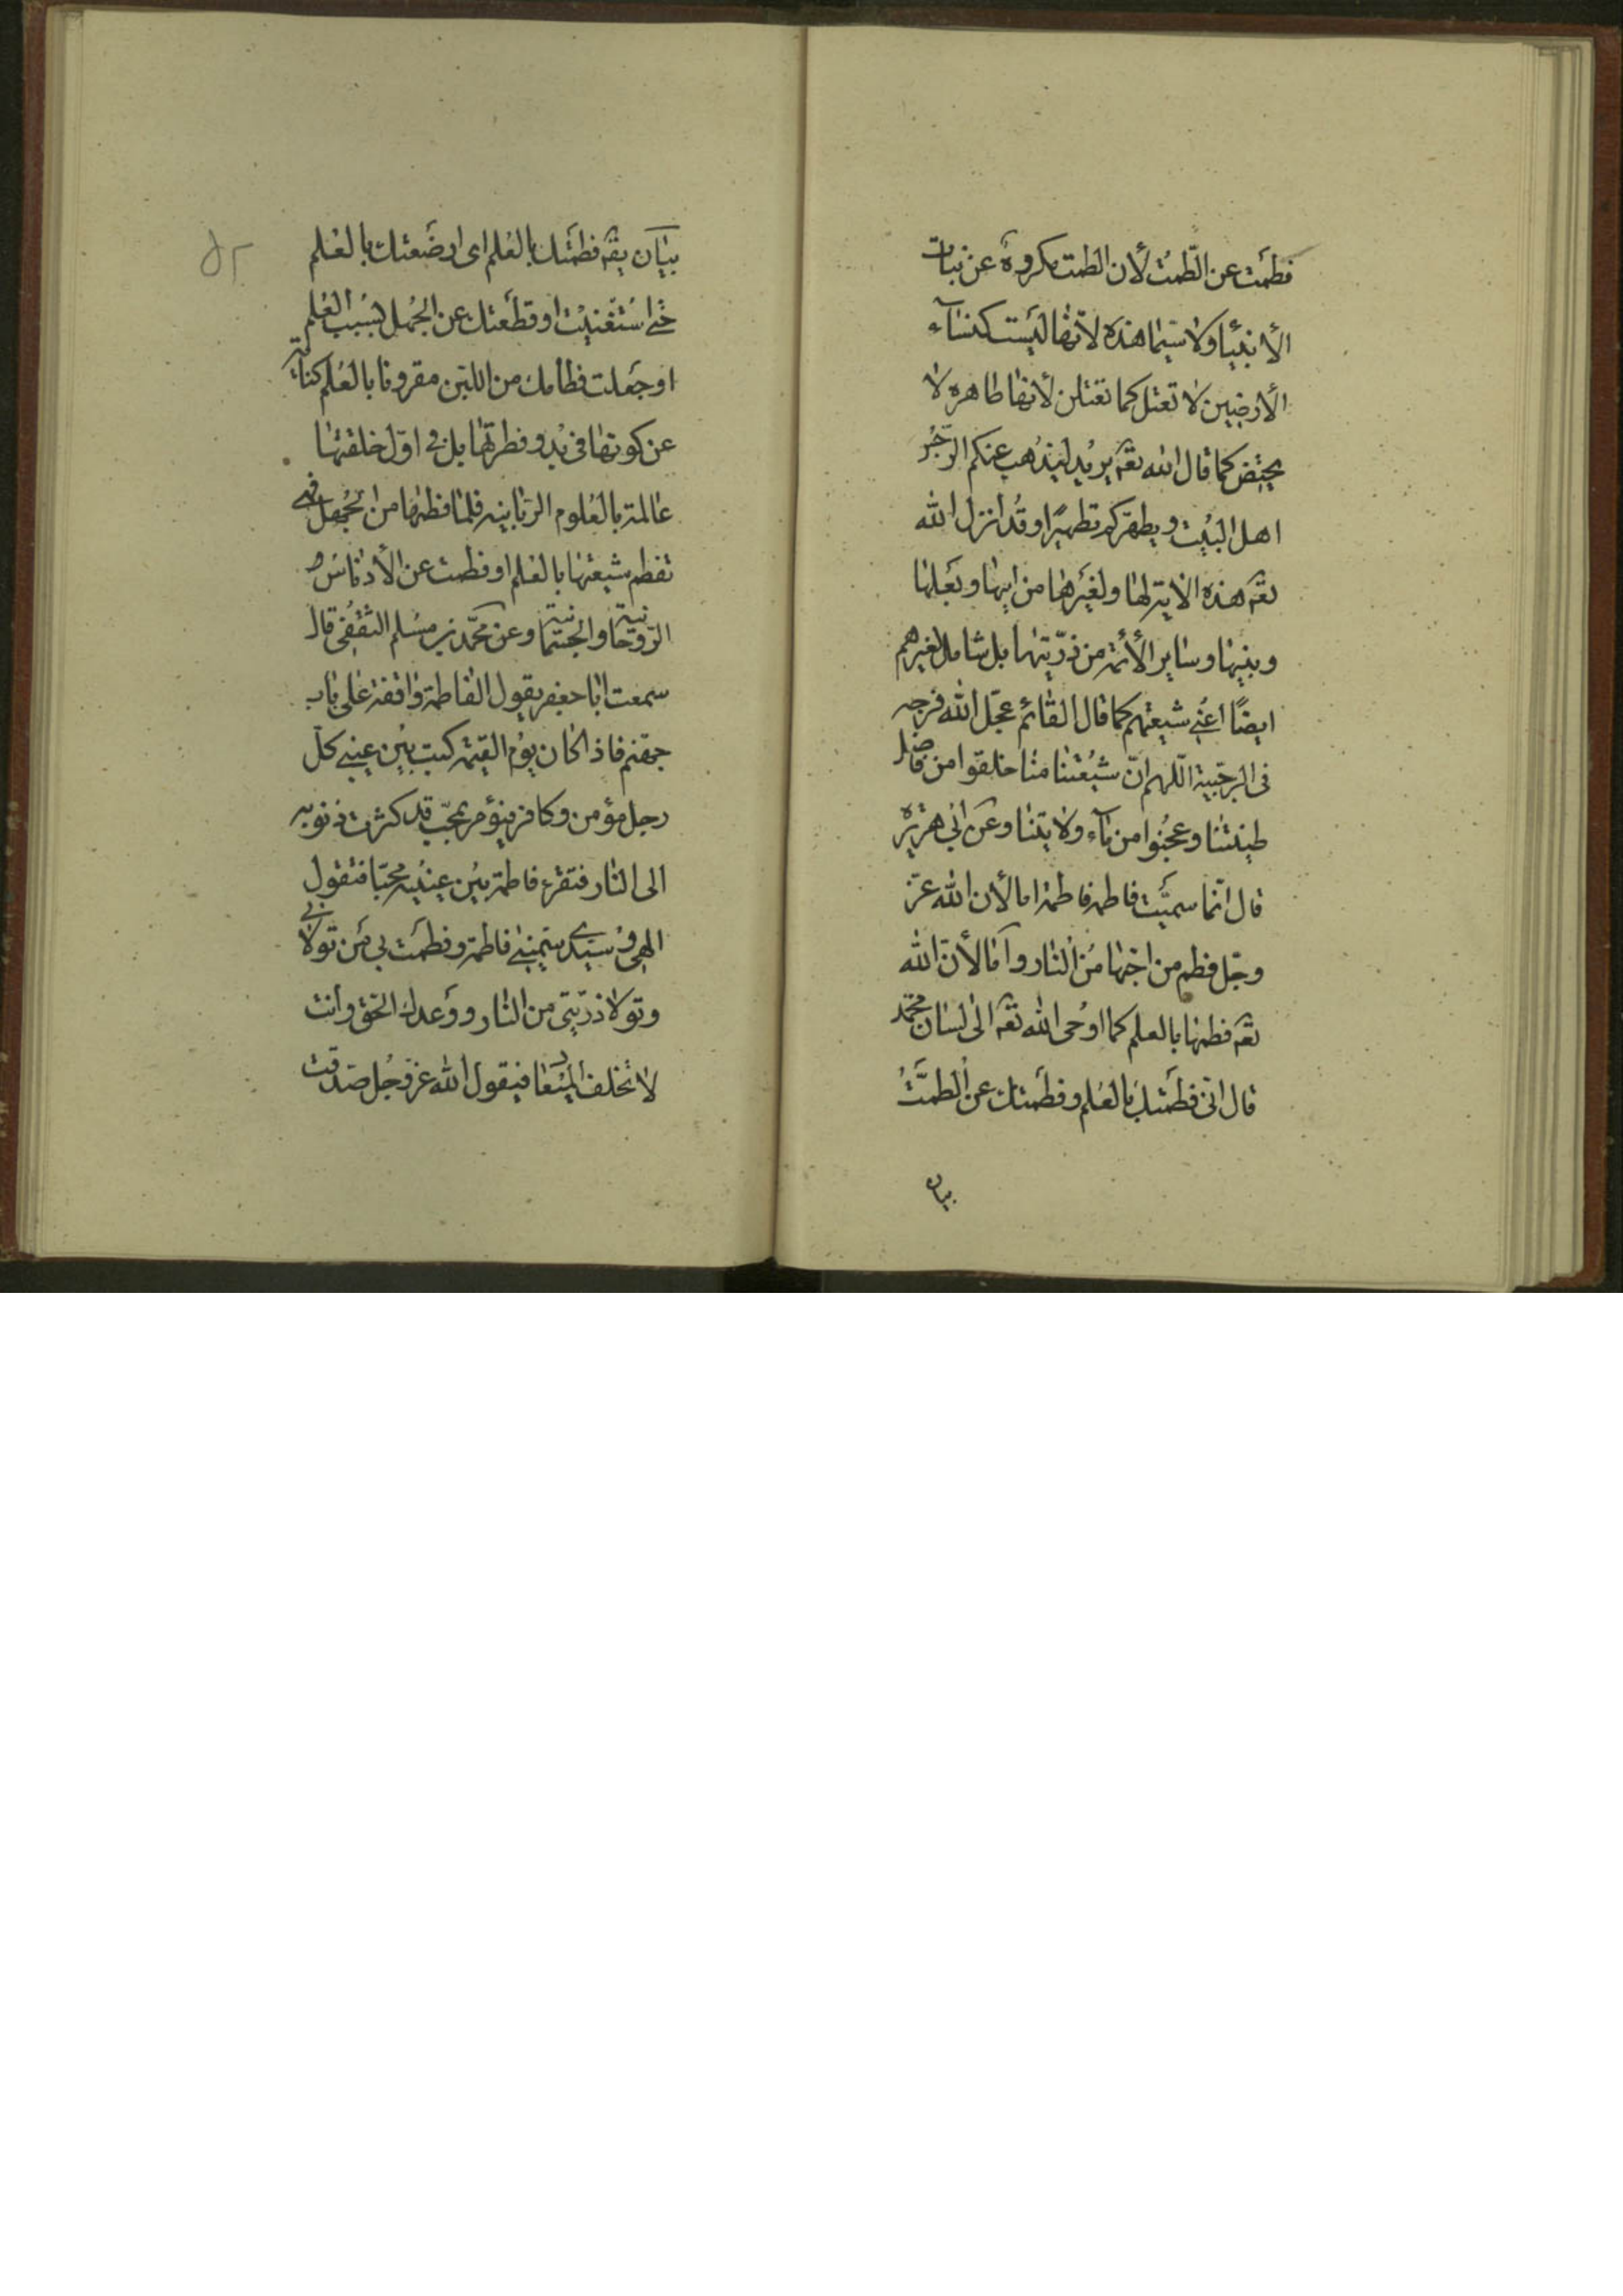 فطمت عن الطّمث لأن الطمث مكروه عن بنات
الأنبيا ولا سيّما هذه لانّها ليست كنسآء
الأرضيين لا تعتل كما تعتلن لأنها طاهره لا
يحيض كما قال الله تعه يريد ليذهب عنكم الرّجس
اهل البيت و يطهّركم تطهيرًا وقد انزل الله
تعه هذه الاية لها ولغيرها من ابيها وبعلها
وبنيها وساير الأئمة من ذرّيتها بل شامل لغيرهم
ايضًا اعني شيعتهم كما قال القائم عجّل الله فرجه
فى الرجبية اللهم انّ شيعتنا منا خلقوا من فاضل
طينتنا وعجنوا من مآء ولايتنا وعن ابي هريره
قال انّما سميّت فاطمه فاطمة اما لأن الله عزّ
وجّل فطم من احبّها من النار وامّا لأنّ الله
تعه فطمها بالعلم كما اوحى الله تعه الى لسان محمّد
قال انّى فطمتك بالعلم وفطمتك عن الطمّث
بيان
بيان يقه فطمتك بالعلم اى ارضعتك بالعلم
حتى استغنيت او قطعتك عن الجهل بسبب العلم
او جعلت فطامك من اللبن مقرونا بالعلم كناية
عن كونها فى بدو فطرتها بل فى اوّل خلقتها
عالمة بالعلوم الربّانيه فلمّا فطمها من الجهل فهى
تفطم شيعتها بالعلم او فطمت عن الأدناس
الرّوحانية والجسمانية وعن محمّد بن مسلم الثقفى قال
سمعت ابا جعفر يقول لفاطمة واقفة على باب
جهّنم فاذا كان يوم القيمه كتب بين عينى كلّ
رجل مؤمن وكافر فيؤمر بمحبّ قد كثرت ذنوبه
الى النار فتقرء فاطمة بين عينيه محبّا فتقول
الهى و سيّدى سمّيتنى فاطمة وفطمت بي من تولانى
وتولا ذرّيتى من النار ووعدك الحقّ وانت
لا تخلف الميعاد فيقول الله عزّ وجل صدقت